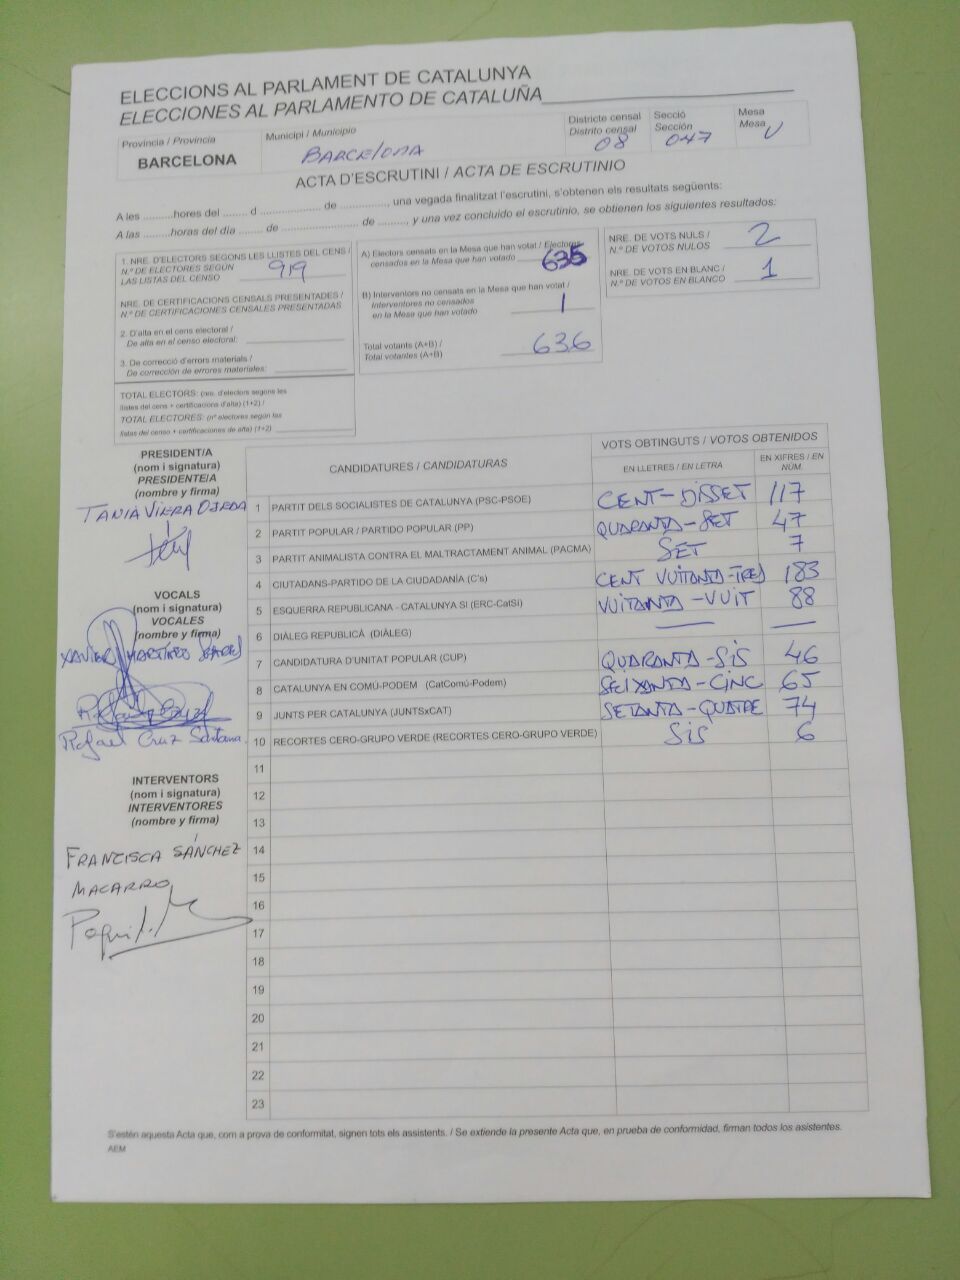 ELECCIONS AL PARLAMENT DE CATALUNYA
ELECCIONES AL PARLAMENTO DE CATALUÑA
Provincia / Provincia
BARCELONA
Municipi / Municipio
BARCELONA
Districte censal
Distrito censal
08
Secció
Sección
047
Mesa
Mesa
U
ACTA D'ESCRUTINI / ACTA DE ESCRUTINIO
A les ..........hores del ........ d .................... de ..............., una vegada finalitzat l'escrutini, s'obtenen els resultats següents:
A las ..........horas del día ........ de .................... de ........, y una vez concluido el escrutinio, se obtienen los siguientes resultados:
1. NRE. D'ELECTORS SEGONS LES LLISTES DEL CENS /
N.º DE ELECTORES SEGÚN
LAS LISTAS DEL CENSO
919
NRE. DE CERTIFICACIONS CENSALS PRESENTADES /
N.º DE CERTIFICACIONES CENSALES PRESENTADAS
2. D'alta en el cens electoral /
De alta en el censo electoral:
3. De correcció d'errors materials /
De corrección de errores materiales:
TOTAL ELECTORS: (nre. d'electors segons les
llistes del cens + certificacions d'alta) (1+2) /
TOTAL ELECTORES: (nº electores según las
listas del censo + certificaciones de alta) (1+2)
A) Electors censats en la Mesa que han votat / Electores
censados en la Mesa que han votado
635
B) Interventors no censats en la Mesa que han votat /
Interventores no censados
en la Mesa que han votado
1
Total votants (A+B) /
Total votantes (A+B)
636
NRE. DE VOTS NULS /
N.º DE VOTOS NULOS
2
NRE. DE VOTS EN BLANC /
N.º DE VOTOS EN BLANCO
1
PRESIDENT/A
(nom i signatura)
PRESIDENTE/A
(nombre y firma)
TANIA VIERA OJEDA
VOCALS
(nom i signatura)
VOCALES
(nombre y firma)
XAVIER MARTÍNEZ
Rafael Cruz Santana
INTERVENTORS
(nom i signatura)
INTERVENTORES
(nombre y firma)
FRANCISCA SÁNCHEZ
MACARRO
CANDIDATURES / CANDIDATURAS
VOTS OBTINGUTS / VOTOS OBTENIDOS
EN LLETRES / EN LETRA
EN XIFRES / EN NÚM.
1 PARTIT DELS SOCIALISTES DE CATALUNYA (PSC-PSOE) CENT-DISSET 117
2 PARTIT POPULAR / PARTIDO POPULAR (PP) QUARANTA-SET 47
3 PARTIT ANIMALISTA CONTRA EL MALTRACTAMENT ANIMAL (PACMA) SET 7
4 CIUTADANS-PARTIDO DE LA CIUDADANÍA (C's) CENT VUITANTA-TRES 183
5 ESQUERRA REPUBLICANA - CATALUNYA SI (ERC-CatSí) VUITANTA-VUIT 88
6 DIÀLEG REPUBLICÀ (DIÀLEG) — —
7 CANDIDATURA D'UNITAT POPULAR (CUP) QUARANTA-SIS 46
8 CATALUNYA EN COMÚ-PODEM (CatComú-Podem) SEIXANTA-CINC 65
9 JUNTS PER CATALUNYA (JUNTSxCAT) SETANTA-QUATRE 74
10 RECORTES CERO-GRUPO VERDE (RECORTES CERO-GRUPO VERDE) SIS 6
11
12
13
14
15
16
17
18
19
20
21
22
23
S'estén aquesta Acta que, com a prova de conformitat, signen tots els assistents. / Se extiende la presente Acta que, en prueba de conformidad, firman todos los asistentes.
AEM